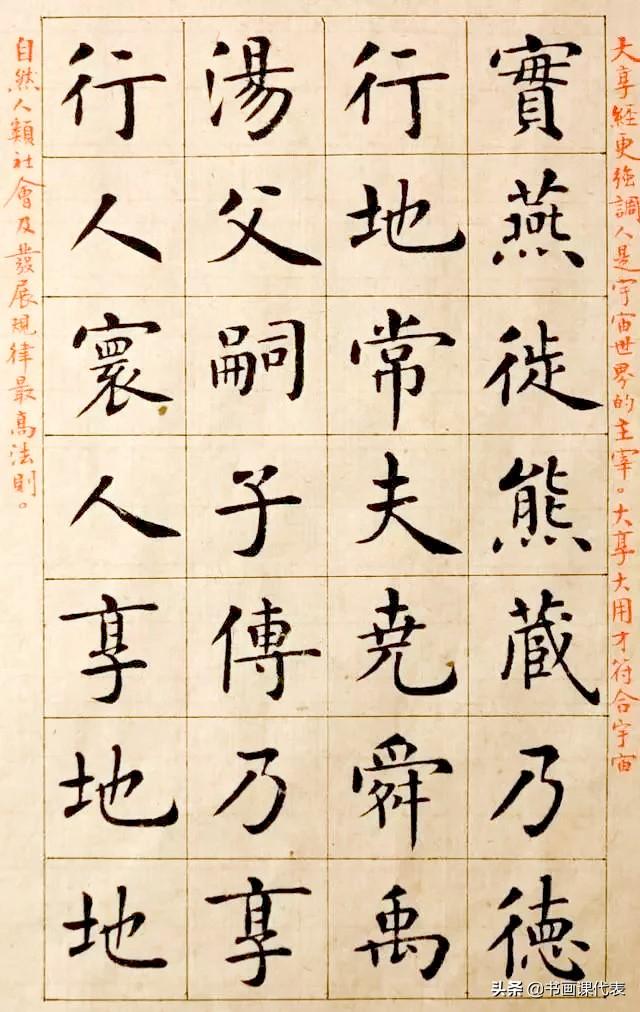 大享經更強調人是宇宙世界的主宰。大享大用才符合宇宙
實燕徙熊藏乃德
行地常夫堯舜禹
湯父嗣子傳乃享
行人寰人享地地
自然人類社會及發展規律最高法則。
头条 @书画课代表